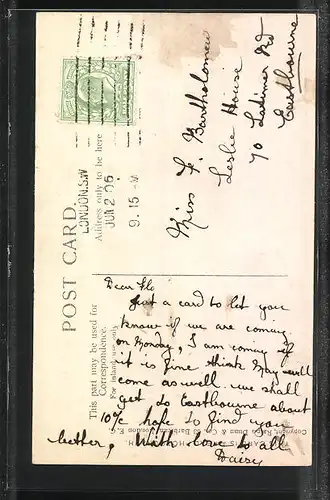 POST CARD.
This part may be used for
Correspondence.
(For Inland use only
Address only to be here
LONDON.S.W
JUN 2 06
9.15
Miss F. Bartholomew
Leslie House
70 Latimer Rd
Eastbourne
Dear Flo
Just a card to let you
know if we are coming
on Monday, I am coming if
it is fine think May will
come as well we shall
get to Eastbourne about
10 o/c hope to find you
better, With love to all
Daisy